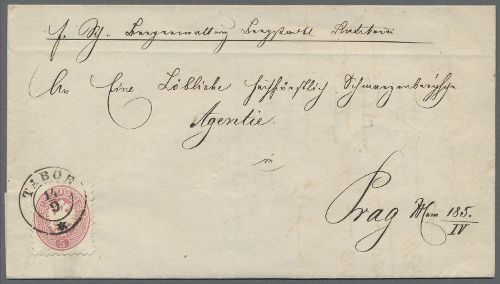 f. Sch. Bergverwaltung Bergstadtl
An Eine Löbliche hochfürstlich Schwarzenberg'sche
Agentie
in
Prag
Nro 185.
IV
TABOR
14
9
5